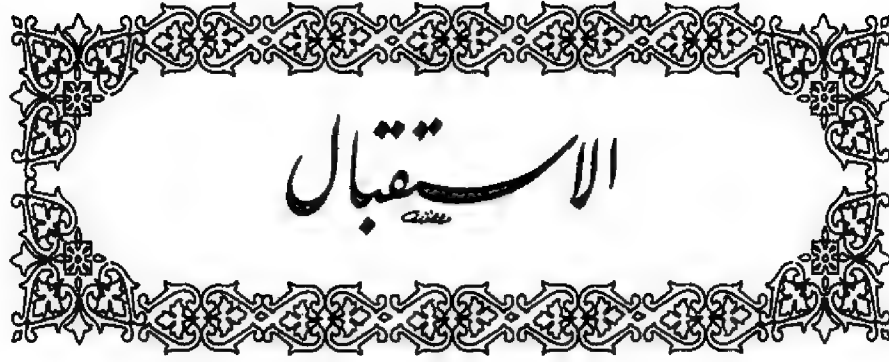 الاستقبال